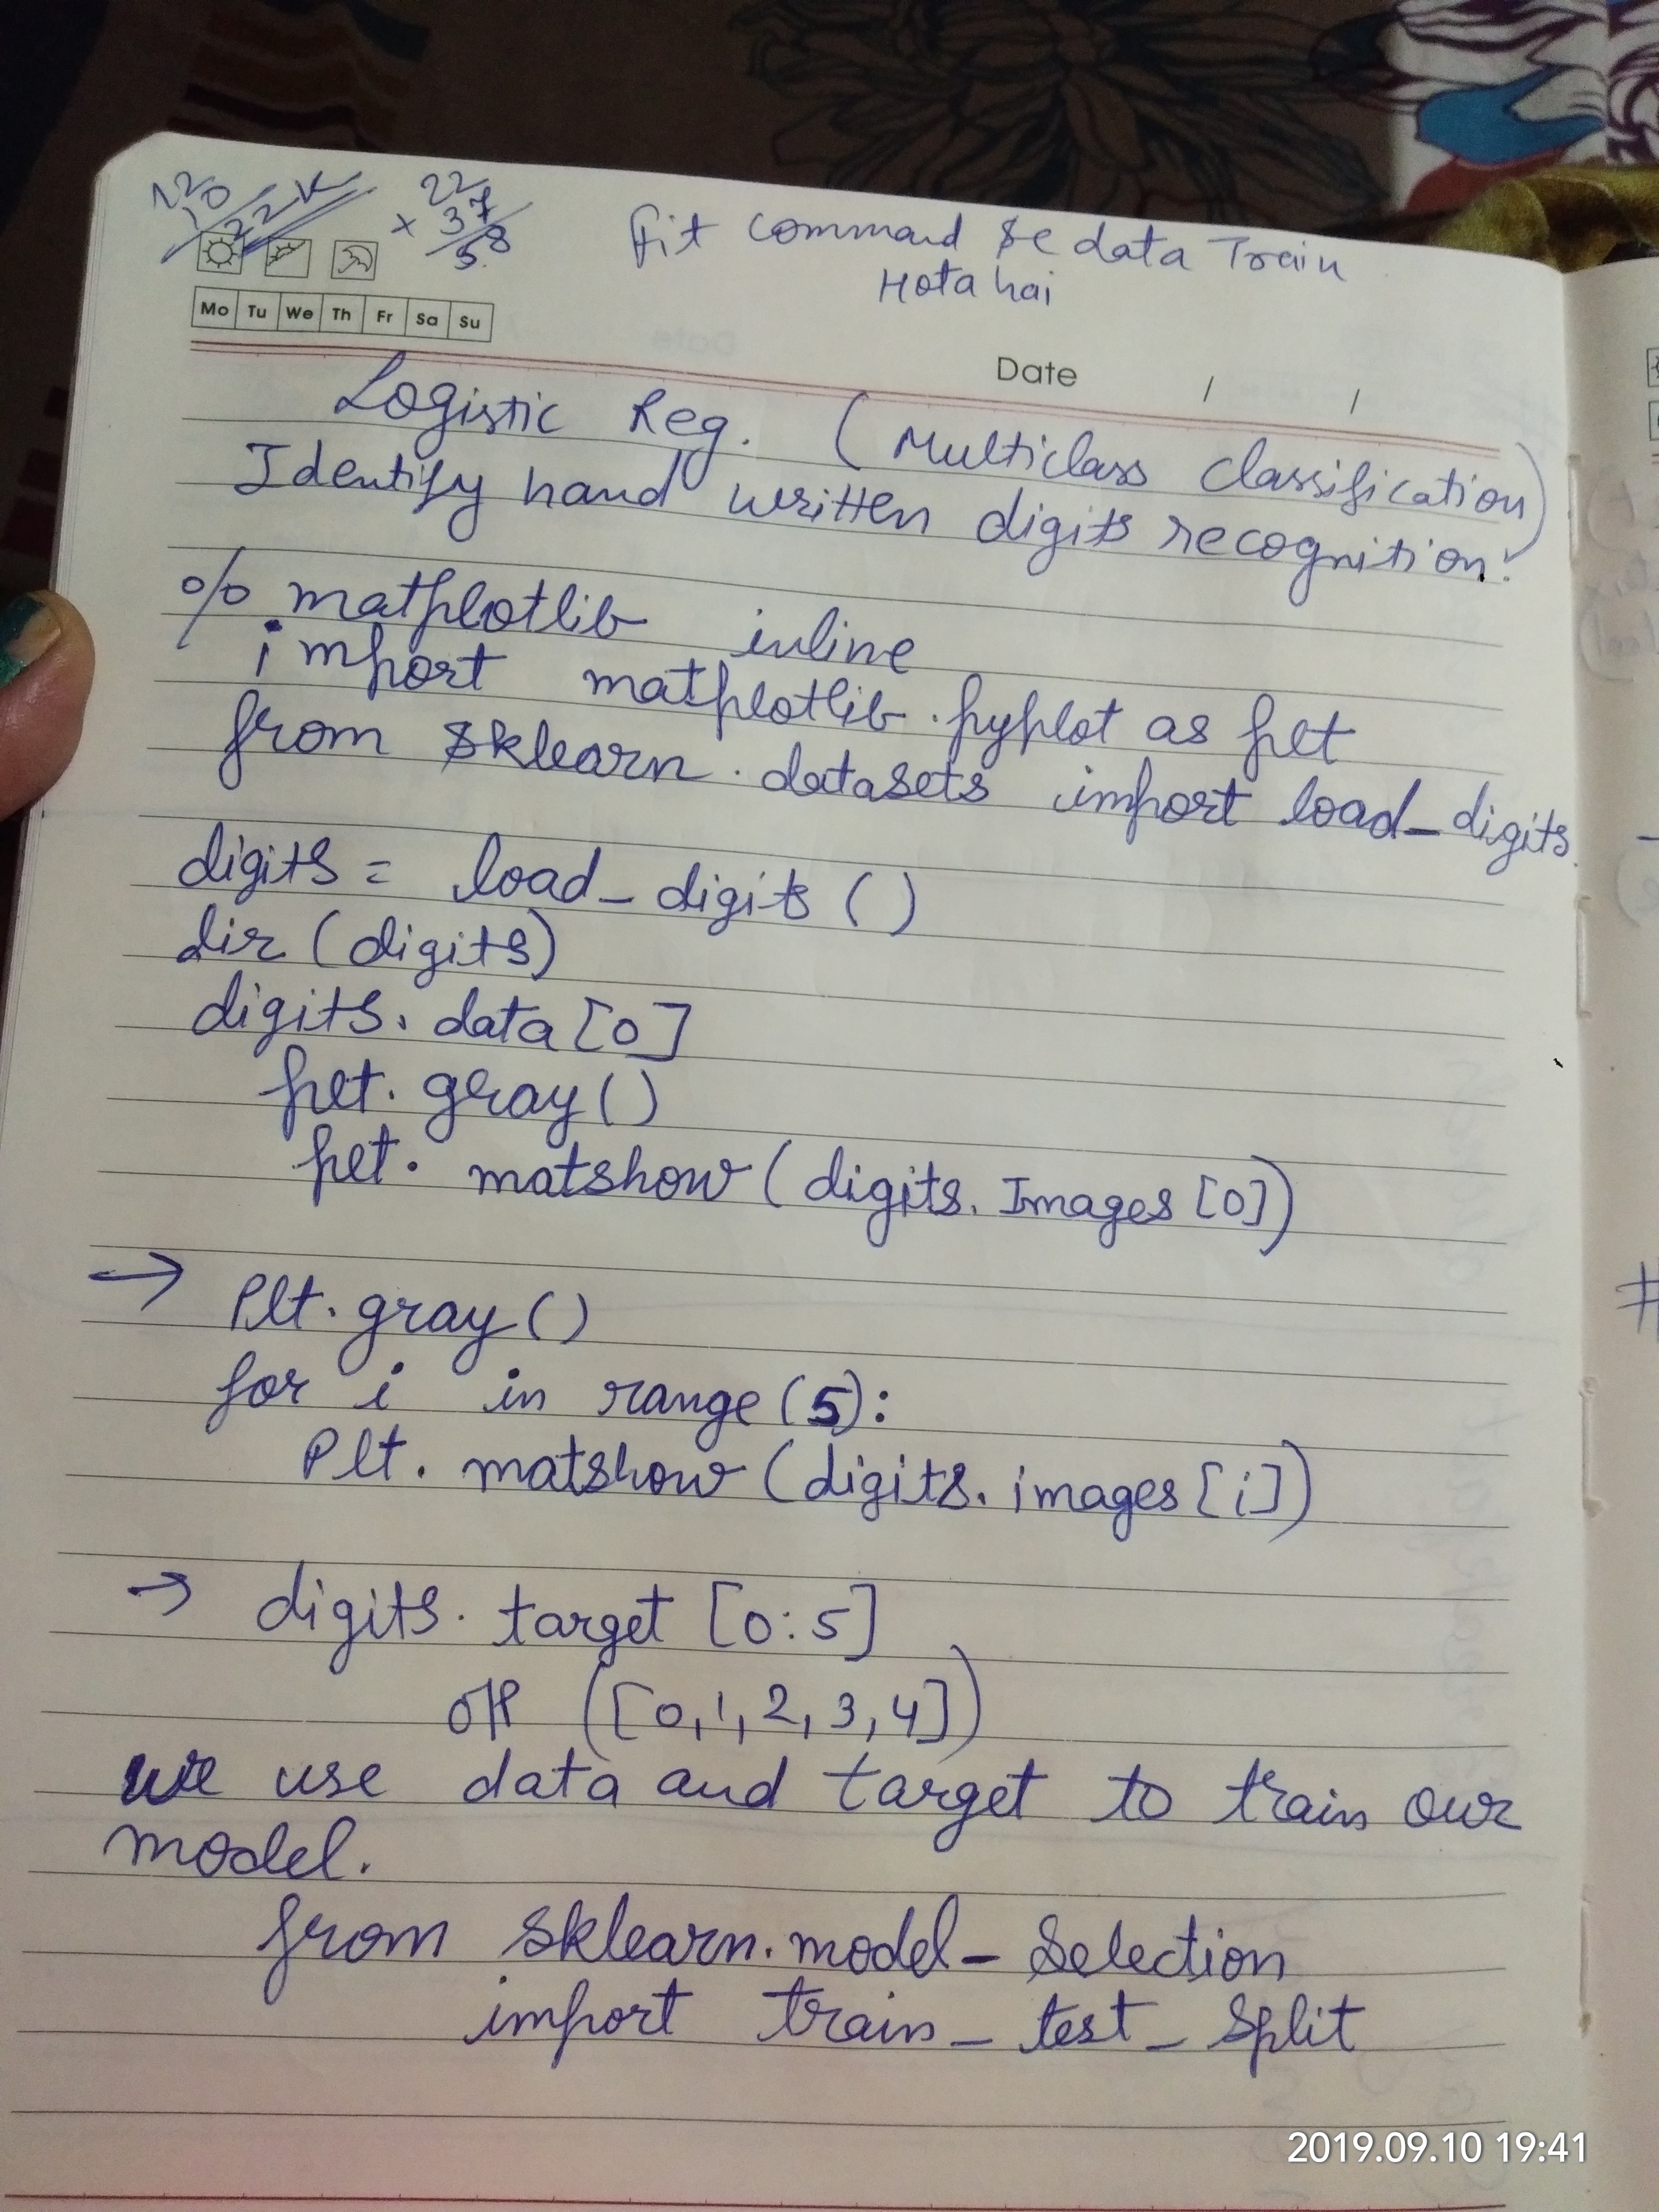 22
× 37
58
fit command se data Train
Hota hai
Mo Tu We Th Fr Sa Su
Date / /
Logistic Reg. (Multiclass Classification)
Identify hand written digits recognition!
% matplotlib inline
import matplotlib.pyplot as plt
from sklearn.datasets import load_digits
digits = load_digits ()
dir (digits)
digits. data [0]
plt. gray ()
plt. matshow (digits. Images [0])
→ Plt. gray ()
for i in range (5):
Plt. matshow (digits. images [i])
→ digits. target [0:5]
([0,1,2,3,4])
we use data and target to train our
model.
from sklearn.model_Selection
import train_test_split
2019.09.10 19:41